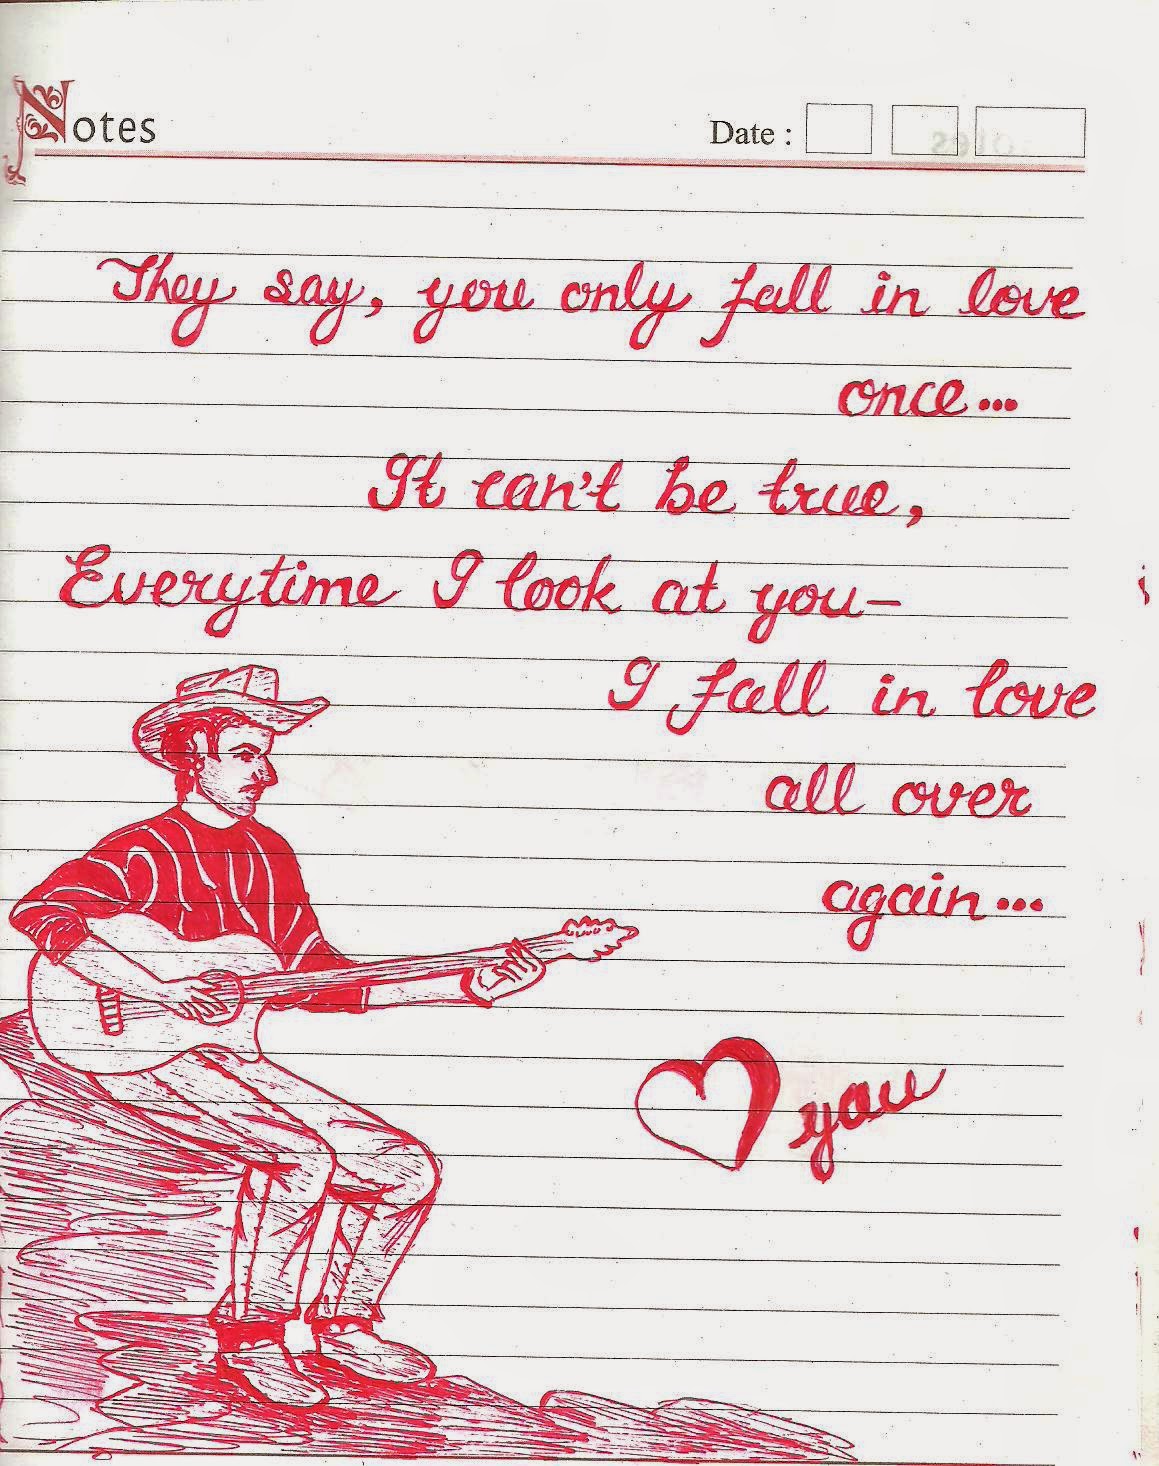 Notes
Date :
They say, you only fall in love
once...
It can't be true,
Everytime I look at you-
I fall in love
all over
again...
you